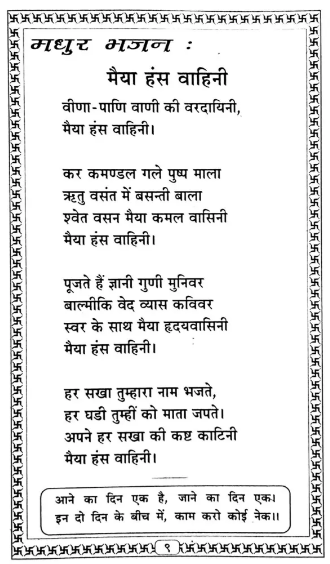 मधुर भजन :
मैया हंस वाहिनी
वीणा-पाणि वाणी की वरदायिनी,
मैया हंस वाहिनी।
कर कमण्डल गले पुष्प माला
ऋतु वसंत में बसन्ती बाला
श्वेत वसन मैया कमल वासिनी
मैया हंस वाहिनी।
पूजते हैं ज्ञानी गुणी मुनिवर
बाल्मीकि वेद व्यास कविवर
स्वर के साथ मैया हृदयवासिनी
मैया हंस वाहिनी।
हर सखा तुम्हारा नाम भजते,
हर घडी तुम्हीं को माता जपते।
अपने हर सखा की कष्ट काटिनी
मैया हंस वाहिनी।
आने का दिन एक है, जाने का दिन एक।
इन दो दिन के बीच में, काम करो कोई नेक।।
९